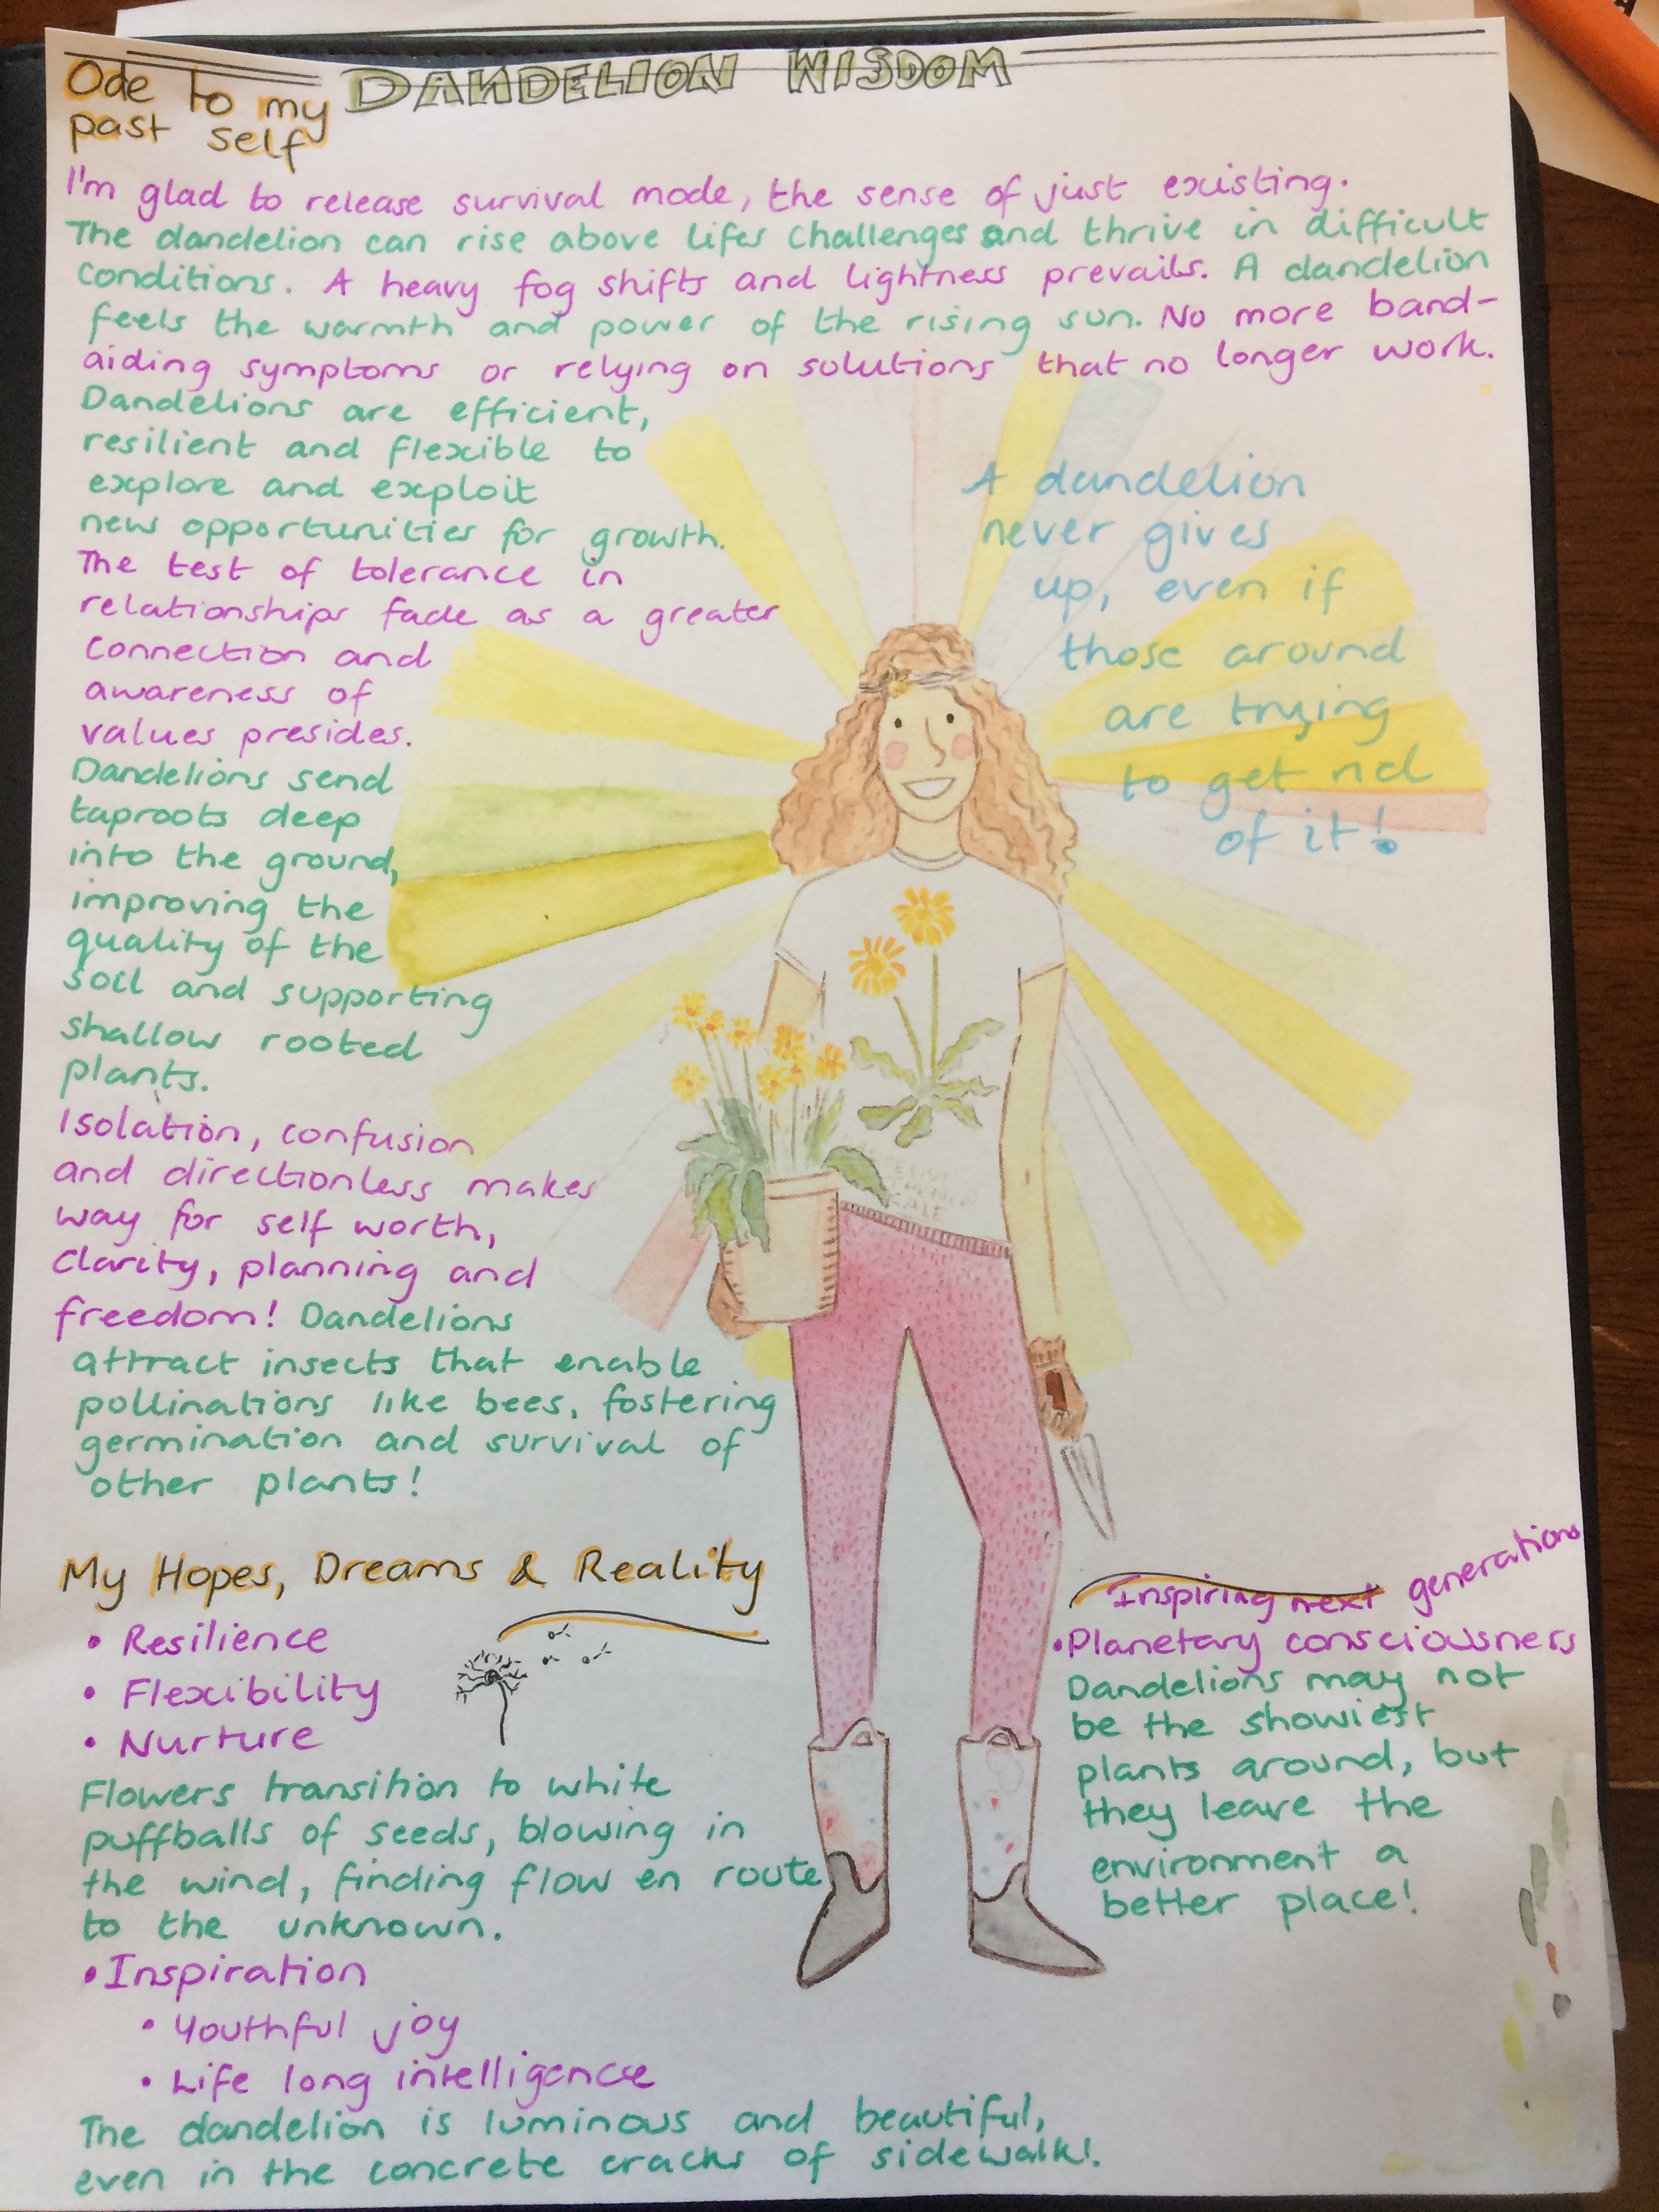 DANDELION WISDOM
Ode to my
past self
I'm glad to release survival mode, the sense of just existing.
The dandelion can rise above lifes challenges and thrive in difficult
conditions. A heavy fog shifts and lightness prevails. A dandelion
feels the warmth and power of the rising sun. No more band-
aiding symptoms or relying on solutions that no longer work.
Dandelions are efficient,
resilient and flexible to
explore and exploit
new opportunities for growth.
The test of tolerance in
relationships fade as a greater
connection and
awareness of
values presides.
Dandelions send
taproots deep
into the ground,
improving the
quality of the
soil and supporting
shallow rooted
plants.
Isolation, confusion
and directionless makes
way for self worth,
clarity, planning and
freedom! Dandelions
attract insects that enable
pollinations like bees, fostering
germination and survival of
other plants!
A dandelion
never gives
up, even if
those around
are trying
to get rid
of it!
My Hopes, Dreams & Reality
• Resilience
• Flexibility
• Nurture
Flowers transition to white
puffballs of seeds, blowing in
the wind, finding flow en route
to the unknown.
• Inspiration
• Youthful joy
• Life long intelligence
The dandelion is luminous and beautiful,
even in the concrete cracks of sidewalk!
Inspiring next generations
• Planetary consciousness
Dandelions may not
be the showiest
plants around, but
they leave the
environment a
better place!